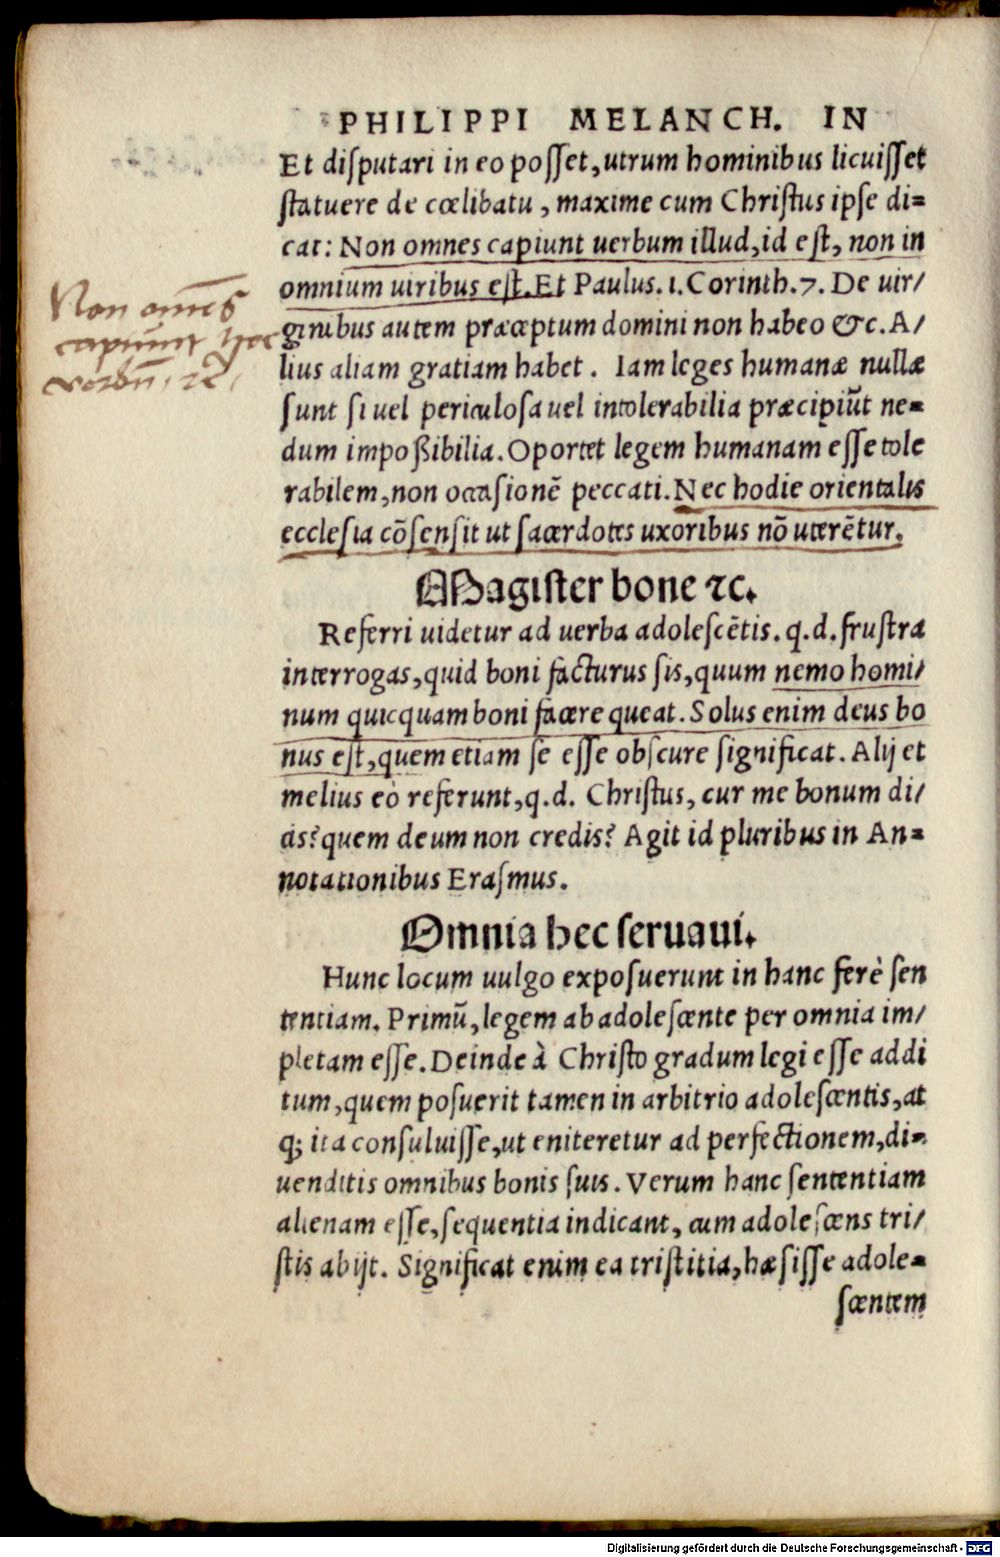 PHILIPPI MELANCH. IN
Et diſputari in eo poſſet, utrum hominibus licuiſſet
ſtatuere de cœlibatu, maxime cum Chriſtus ipſe di=
cat: Non omnes capiunt uerbum illud, id eſt, non in
omnium uiribus eſt. Et Paulus. 1. Corinth. 7. De uir/
ginibus autem præceptum domini non habeo &c. A/
lius aliam gratiam habet. Iam leges humanæ nullæ
ſunt ſi uel periculoſa uel intolerabilia præcipiũt ne=
dum impoßibilia. Oportet legem humanam eſſe tole
rabilem, non occaſionẽ peccati. Nec hodie orientalis
eccleſia cõſenſit ut ſacerdotes uxoribus nõ uterẽtur.
Non om̃es
capiunt hoc
verbũ, ꝛc.
Magiſter bone ꝛc.
Referri uidetur ad uerba adoleſcẽtis. q.d. fruſtra
interrogas, quid boni facturus ſis, quum nemo homi/
num quicquam boni facere queat. Solus enim deus bo
nus eſt, quem etiam ſe eſſe obſcure ſignificat. Alij et
melius eò referunt, q.d. Chriſtus, cur me bonum di/
cis? quem deum non credis? Agit id pluribus in An=
notationibus Eraſmus.
Omnia hec ſeruaui.
Hunc locum uulgo expoſuerunt in hanc ferè ſen
tentiam. Primũ, legem ab adoleſcente per omnia im/
pletam eſſe. Deinde à Chriſto gradum legi eſſe addi
tum, quem poſuerit tamen in arbitrio adoleſcentis, at
q; ita conſuluiſſe, ut eniteretur ad perfectionem, di=
uenditis omnibus bonis ſuis. Verum hanc ſententiam
alienam eſſe, ſequentia indicant, cum adoleſcens tri/
ſtis abijt. Significat enim ea triſtitia, hæſiſſe adole=
ſcentem
Digitalisierung gefördert durch die Deutsche Forschungsgemeinschaft - DFG